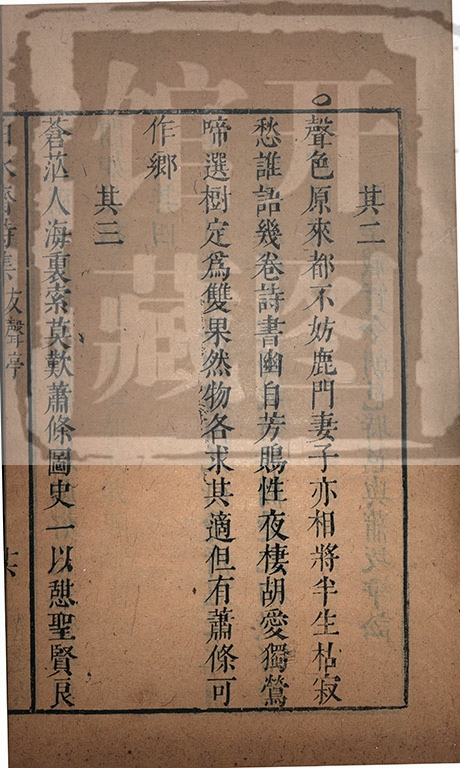 其二
聲色原來都不妨鹿門妻子亦相將半生枯寂
愁誰語幾卷詩書幽自芳鵙性夜棲胡愛獨鶯
啼選樹定爲雙果然物各求其適但有蕭條可
作鄉
其三
蒼茫人海裏索莫歎蕭條圖史一以憩聖賢良
詩集 放聲亭
开图
馆藏